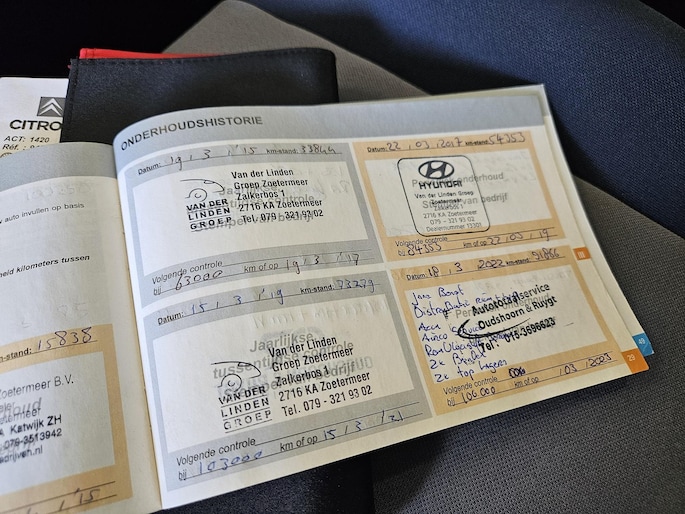 CITRO
ACT: 1420
Réf. :
auto invullen op basis
heid kilometers tussen
km-stand: 15838
Zoetermeer B.V.
Katwijk ZH
079-3513942
edrijven.nl
ONDERHOUDSHISTORIE
Datum: 19/3/'15 km-stand: 33844
Van der Linden
Groep Zoetermeer
Zalkerbos 1
2716 KA Zoetermeer
Tel. 079 - 321 93 02
VAN DER
LINDEN
GROEP
Volgende controle
bij 63000 km of op 19/3/'17
Datum: 22/03/2017 km-stand: 54353
HYUNDAI
Van der Linden Groep
Zoetermeer
Zalkerbos 1
2716 KA Zoetermeer
079 - 321 93 02
Dealernummer 13301
Volgende controle
bij 84353 km of op 22/03/19
Datum: 15/3/'19 km-stand: 73279
Jaarlijkse
tussentijdse controle
Van der Linden
Groep Zoetermeer
Zalkerbos 1
2716 KA Zoetermeer
Tel. 079 - 321 93 02
VAN DER
LINDEN
GROEP
Volgende controle
bij 103000 km of op 15/3/'21
Datum: 18/3/2022 km-stand: 91866
Distributie
Accu
Airco
2x
2x top lagers
Autototaalservice
Oudshoorn & Ruygt
Tel: 015-3696623
Volgende controle
bij 106000 km of op /03/2023
III
49
29